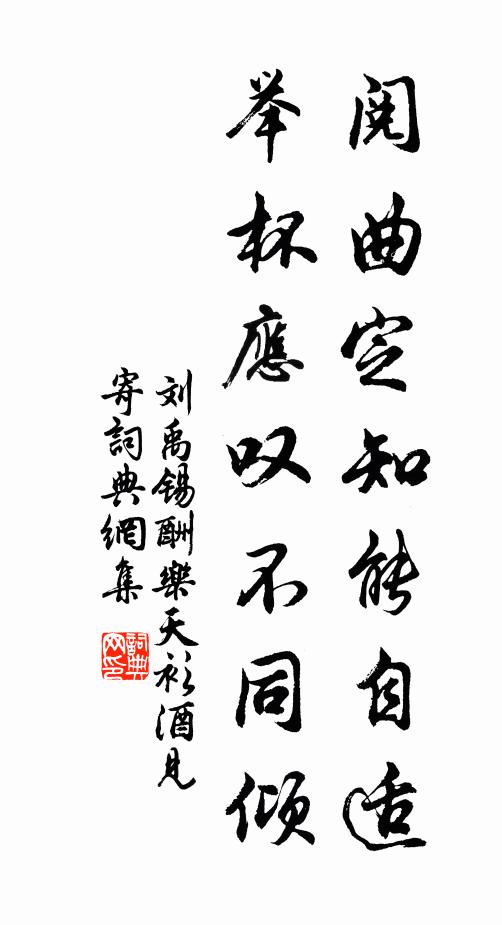 阅曲定知能自适
举杯應叹不同倾
刘禹锡酬樂天衫酒見
寄詞典網集
詞典
网印